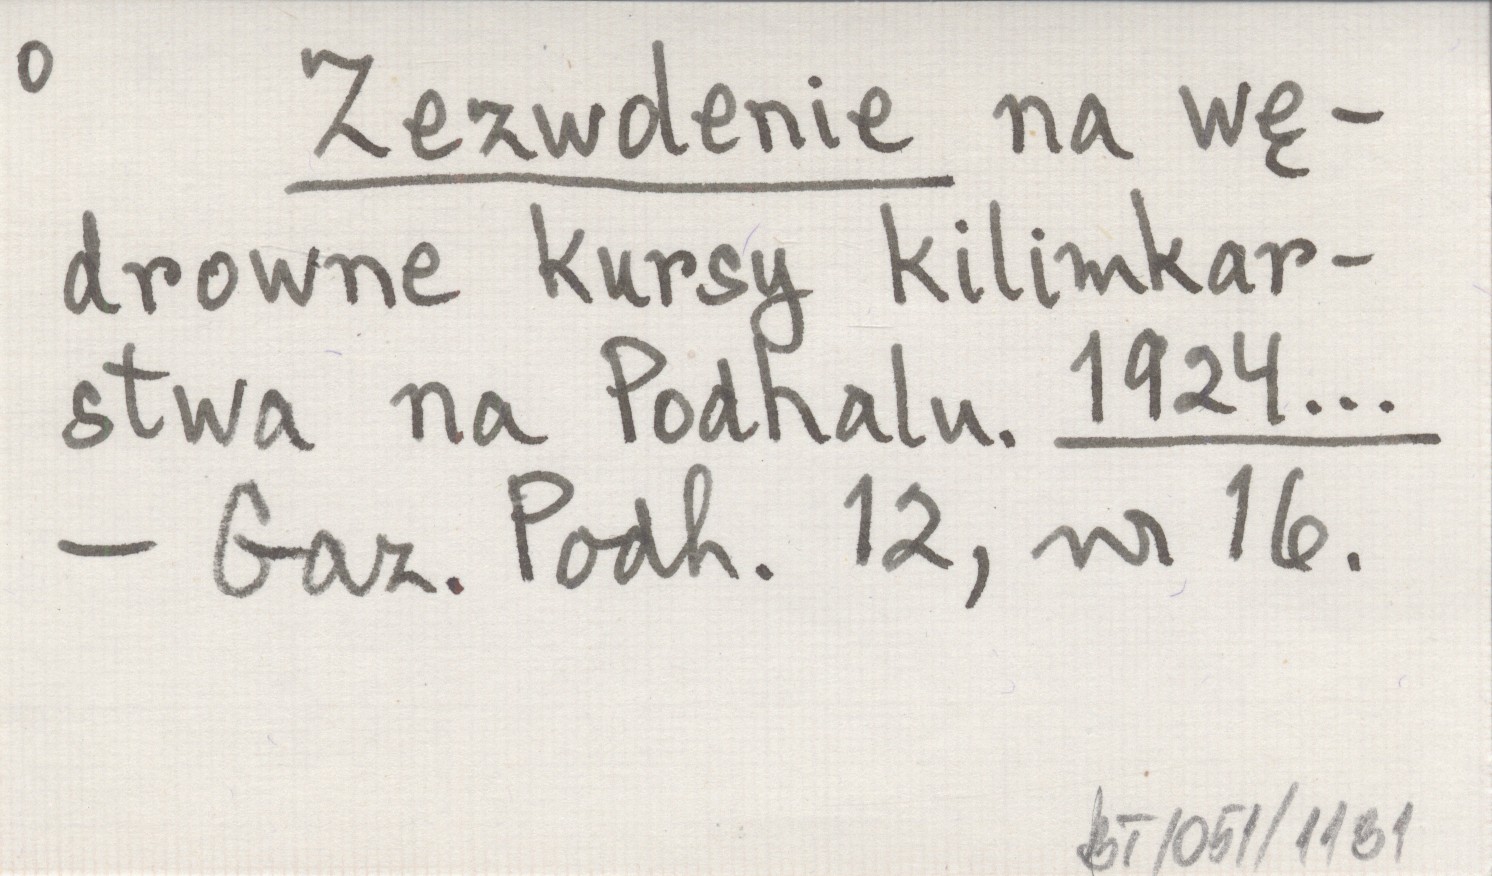 o Zezwolenie na wę-
drowne kursy kilimkar-
stwa na Podhalu. 1924...
— Gaz. Podh. 12, nr 16.
BT/051/1131